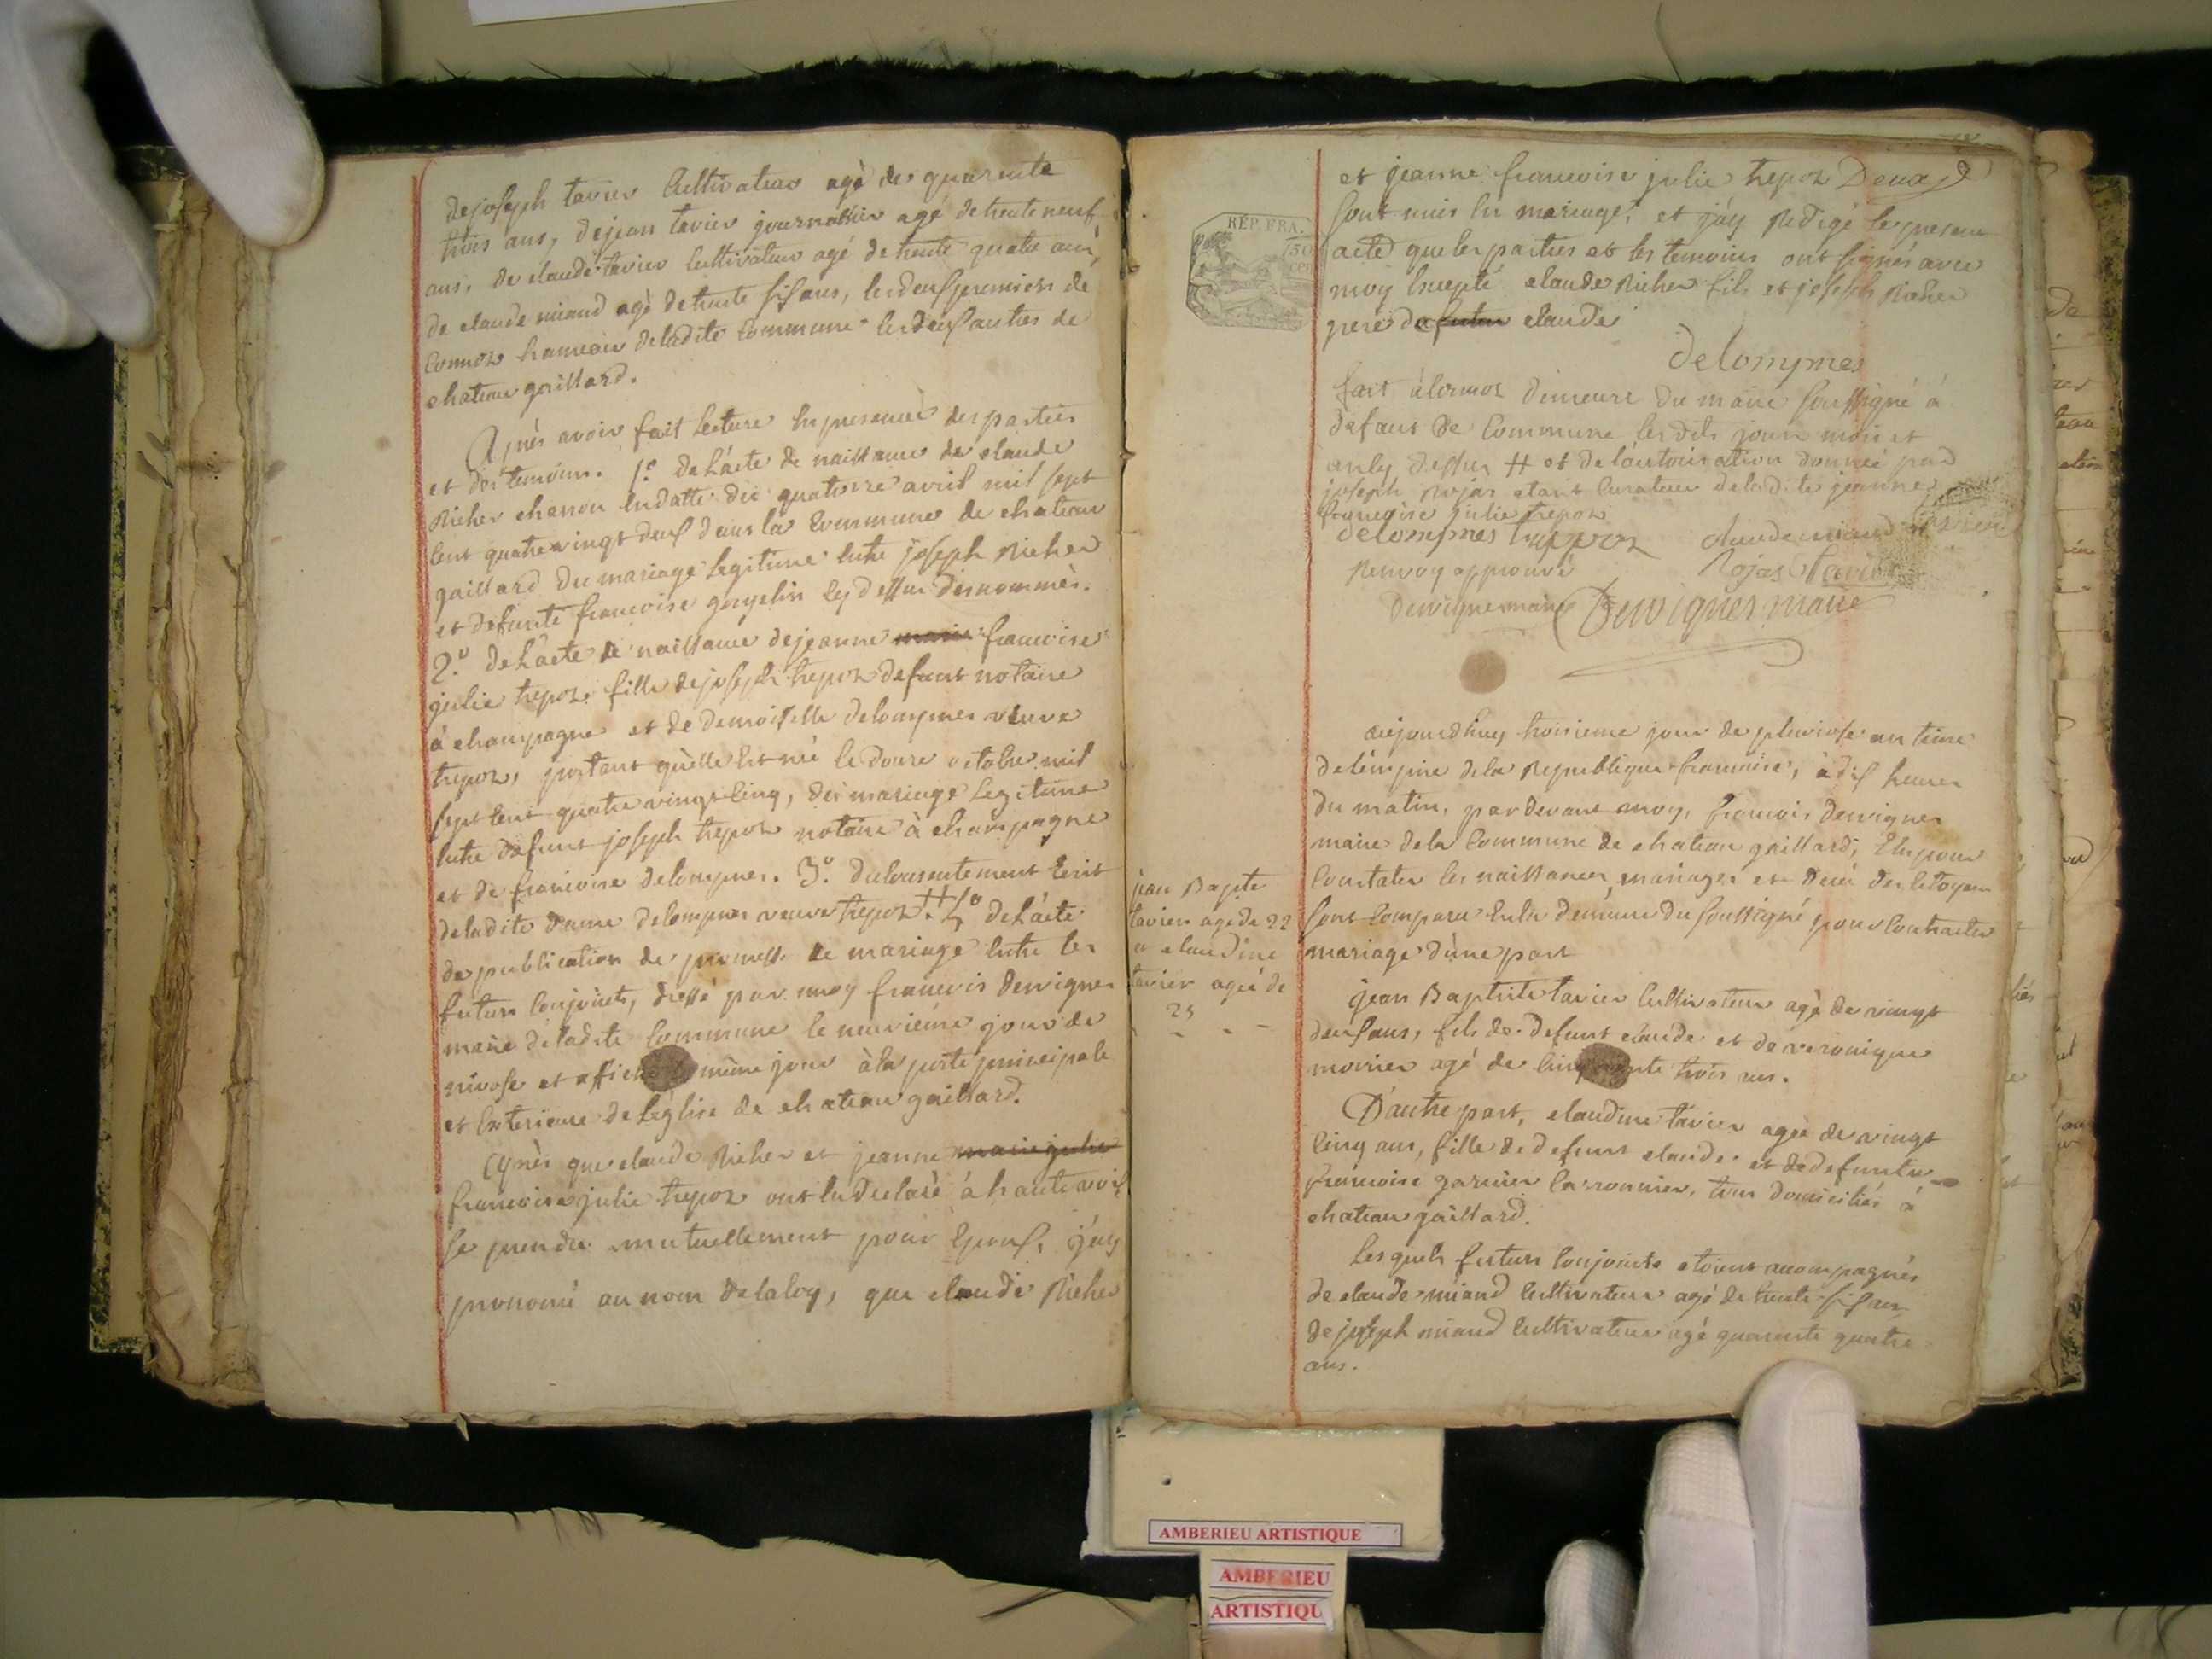 de joseph tavier Cultivateur agé de quarente
trois ans, de jean tavier journallier agé de trente neuf
ans, de claude tavier Cultivateur agé de trente quatre ans,
de claude miand agé de trente six ans, les deux premiers de
Cormoz hameau de ladite Commune les deux autres de
chateau gaillard.
Après avoir fait lecture en presence des parties
et des temoins. 1.° de l'acte de naissance de claude
Richer en datte du quatorze avril mil sept
cent quatre vingt deux dans la Commune de chateau
gaillard du mariage legitime entre joseph Richer
et defunte francoise goyelin cy dessus denommés.
2.° de l'acte de naissance de jeanne marie francoise
julie trepoz fille de joseph trepoz defunt notaire
à champagne et de demoiselle delompnes veuve
trepoz, portant qu'elle est née le douze octobre mil
sept cent quatre vingt cinq, du mariage legitime
entre defunt joseph trepoz notaire à champagne
et de francoise delompnes. 3.° du consentement Ecrit
de ladite dame delompnes veuve trepoz # 4° de l'acte
de publication de promesse de mariage entre les
futurs conjoints, dressé par moy francois Dervignes
maire de ladite Commune le neuvieme jour de
nivose et affiché le même jour à la porte principale
et Exterieure de l'église de chateau gaillard.
Après que claude Richer et jeanne marie julie
francoise julie trepoz ont eu declaré à haute voix
se prendre mutuellement pour Epoux, j'ay
prononcé au nom de la loy, que claude Richer
et jeanne francoise julie trepoz
sont unis en mariage, et j'ay Redigé le present
acte que les parties et les temoins ont signés avec
moy Excepté claude Richer fils et joseph Richer
pere de futur claude
REP. FRA.
50
cen
Delompnes
fait à Cormoz demeure du maire soussigné à
defaut de Commune lesdits jour mois et
an cy dessus # et de l'autorisation donneé par
joseph Rojas etant Curateur de ladite jeanne
francoise julie trepoz
delompnes trepoz claude miand tavier
Renvoy approuvé Rojas tavier
Dervignes maire Dervignes maire
aujourdhuy troisieme jour de pluviose an treize
de l'empire de la Republique francoise, à dix heures
du matin, par devant moy, francois dervignes
maire de la Commune de chateau gaillard, Elu pour
Constater les naissances, mariages et decés des Citoyens
sont Comparu en la demeure du soussigné pour Contracter
mariage d'une part
jean Bapte
tavier agé de 22
et claudine
tavier ageé de
25
jean Baptiste tavier Cultivateur agé de vingt
deux ans, fils de defunt claude et de veronique
morier agé de cinquante trois ans.
D'autre part, claudine tavier ageé de vingt
cinq ans, fille de defunt claude et de defunte
francoise garnier tous domiciliés à
chateau gaillard.
Lesquels futurs Conjoints etoient accompagnés
de claude miand Cultivateur agé de trente six ans
de joseph miand Cultivateur agé quarente quatre
ans.
AMBERIEU ARTISTIQUE
AMBERIEU
ARTISTIQU